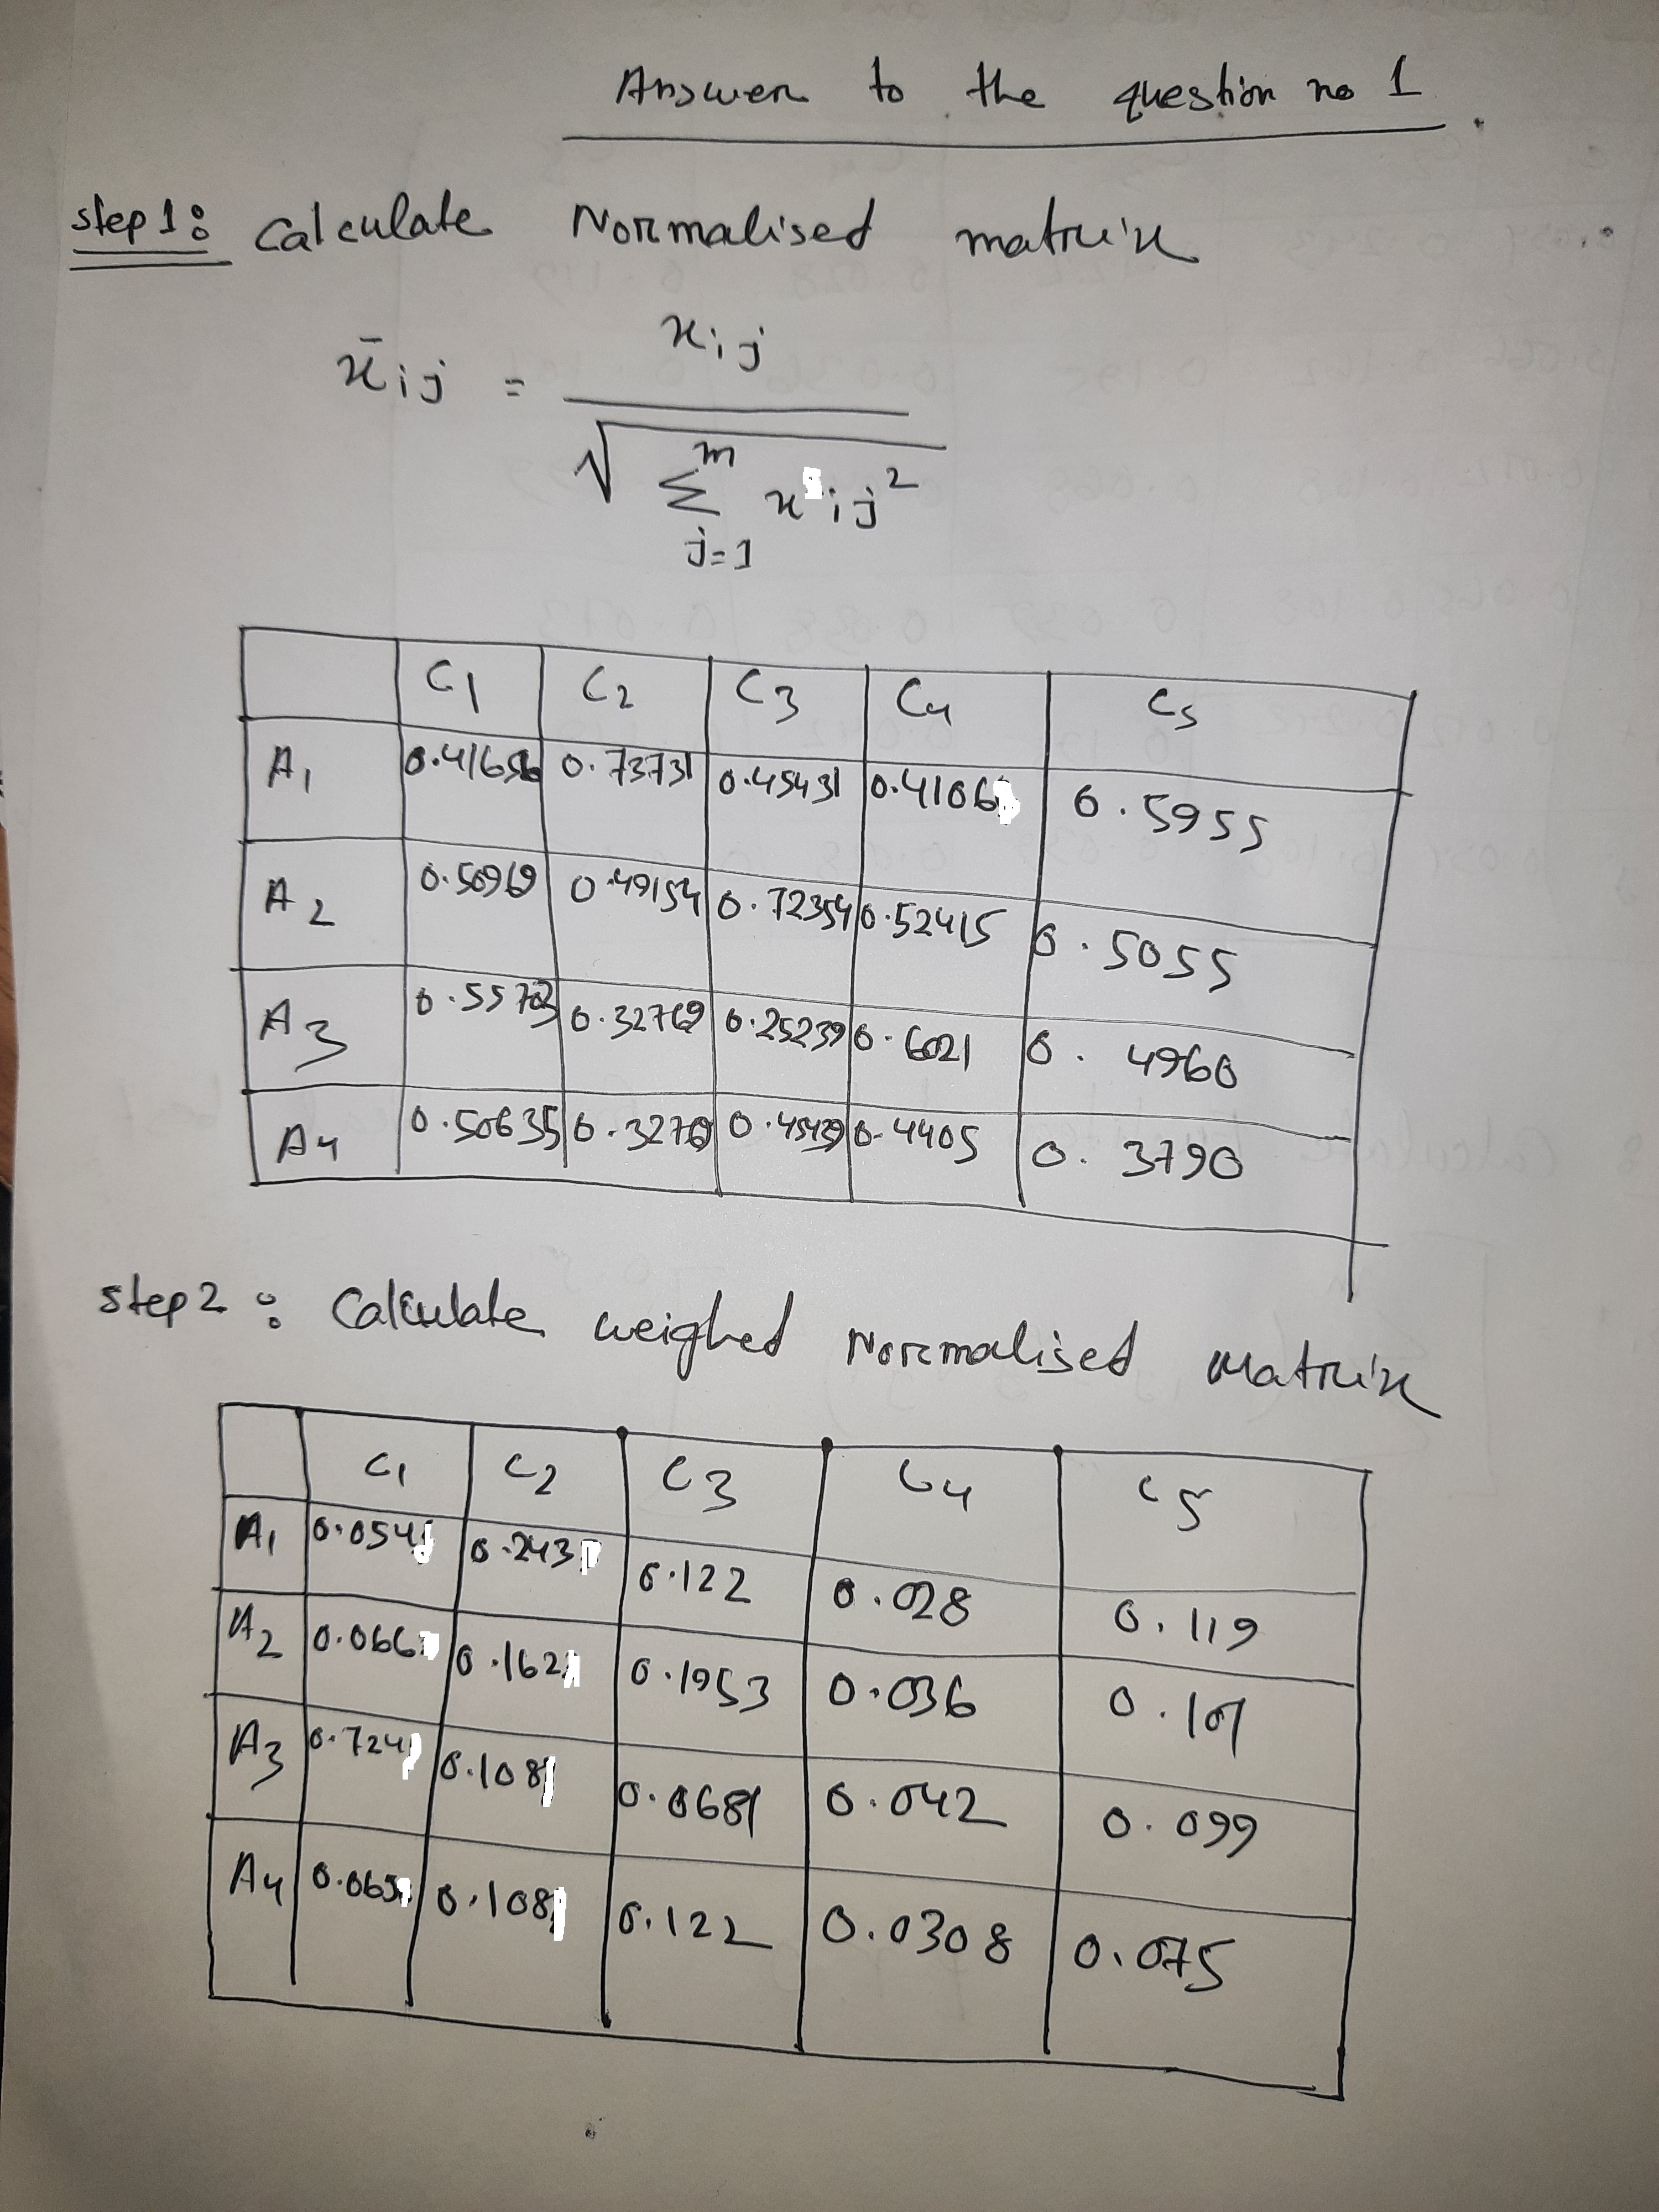 Answer to the question no 1.
step 1: Calculate Normalised matrix
x̄ij = xij / √ Σ m j=1 xij²
C1 C2 C3 C4 C5
A1 0.41656 0.73731 0.45431 0.4106 0.5955
A2 0.50969 0.49154 0.72354 0.52415 0.5055
A3 0.32769 0.25239 0.6021 0.4960
A4 0.50635 0.4405 0.3790
step 2: Calculate weighed Normalised matrix
C1 C2 C3 C4 C5
A1 0.054 0.243 0.122 0.028 0.119
A2 0.066 0.162 0.1953 0.036 0.101
A3 0.724 0.108 0.0681 0.042 0.099
A4 0.065 0.108 0.122 0.0308 0.075